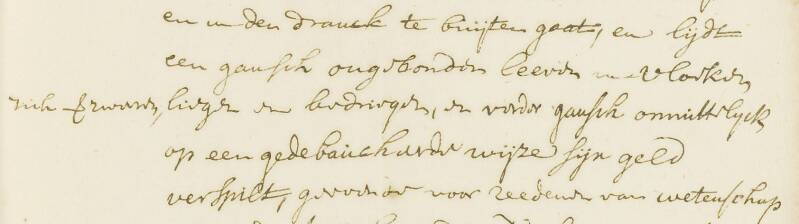 en in den dranck te buijten gaat, en lijdt
een gansch ongebonden leeven in vloeken
liegen en bedriegen, en verder gansch onnuttelyck
op een gedebaucheerde wijze sijn geld
verspilt, geevende voor reedenen van wetenschap